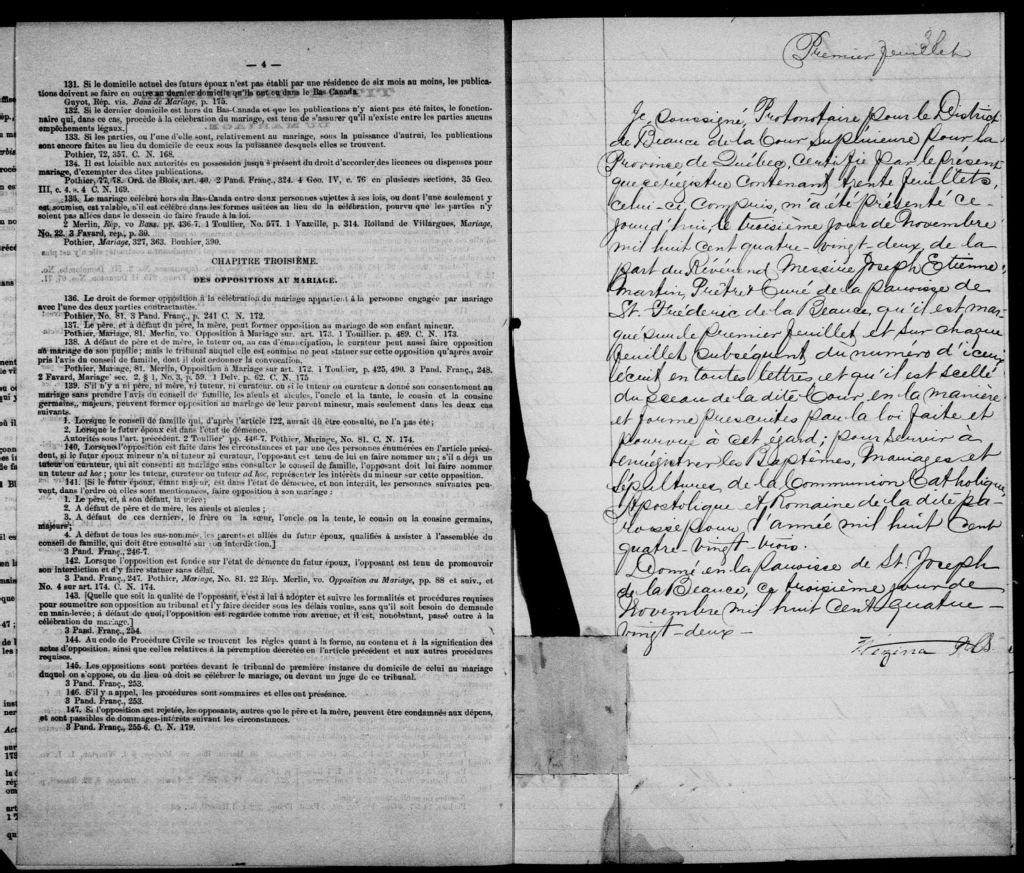 — 4 —
131. Si le domicile actuel des futurs époux n'est pas établi par une résidence de six mois au moins, les publica-
tions doivent se faire en outre au dernier domicile qu'ils ont eu dans le Bas Canada.
Guyot, Rép. vis. Bans de Mariage, p. 175.
132. Si le dernier domicile est hors du Bas-Canada et que les publications n'y aient pas été faites, le fonction-
naire qui, dans ce cas, procède à la célébration du mariage, est tenu de s'assurer qu'il n'existe entre les parties aucuns
empêchements légaux.
133. Si les parties, ou l'une d'elle, sont, relativement au mariage, sous la puissance d'autrui, les publications
sont encore faites au lieu du domicile de ceux sous la puissance desquels elles se trouvent.
Pothier, 72, 357. C. N. 168.
134. Il est loisible aux autorités en possession jusqu'à présent du droit d'accorder des licences ou dispenses pour
mariage, d'exempter des dites publications.
Pothier, 77, 78. Ord. de Blois, art. 40. 2 Pand. Franç., 324. 4 Geo. IV, c. 76 en plusieurs sections, 35 Geo.
III, c. 4. s. 4 C. N. 169.
135. Le mariage célébré hors du Bas-Canda entre deux personnes sujettes à ses lois, ou dont l'une seulement y
est soumise, est valable, s'il est célébré dans les formes usitées au lieu de la célébration, pourvu que les parties n'y
soient pas allées dans le dessein de faire fraude à la loi.
2 Merlin, Rép, vo Bans. pp. 436-7. 1 Toullier, No. 577. 1 Vazeille, p. 314. Rolland de Villargues, Mariage,
No. 22. 3 Favard, rep., p. 30.
Pothier, Mariage, 327, 363. Bouhier, 390.
CHAPITRE TROISIÈME.
DES OPPOSITIONS AU MARIAGE.
136. Le droit de former opposition à la célébration du mariage appartient à la personne engagée par mariage
avec l'une des deux parties contractantes.
Pothier, No. 81. 3 Pand. Franç., p. 241 C. N. 172.
137. Le père, et à défaut du père, la mère, peut former opposition au mariage de son enfant mineur.
Pothier, Mariage, 81. Merlin, vo. Opposition à Mariage sur. art. 173. 1 Touillier, p. 489. C. N. 173.
138. A défaut de père et de mère, le tuteur ou, au cas d'émancipation, le curateur peut aussi faire opposition
au mariage de son pupille; mais le tribunal auquel elle est soumise ne peut statuer sur cette opposition qu'après avoir
pris l'avis du conseil de famille, dont il doit ordonner la convocation.
Pothier, Mariage, 81. Merlin, Opposition à Mariage sur art. 172. 1 Toulier, p. 425, 490. 3 Pand. Franç., 248.
2 Favard, Mariage sec. 2, § 1, No. 3, p. 59. 1 Delv. p. 62. C. N. 175
139. S'il n'y a ni père, ni mère, ni tuteur, ni curateur, ou si le tuteur ou curateur a donné son consentement au
mariage sans prendre l'avis du conseil de famille, les aïeuls et aïeules, l'oncle et la tante, le cousin et la cousine
germains, majeurs, peuvent former opposition au mariage de leur parent mineur, mais seulement dans les deux cas
suivants.
1. Lorsque le conseil de famille qui, d'après l'article 122, aurait dû être consulté, ne l'a pas été;
2. Lorsque le futur époux est dans l'état de démence.
Autorités sous l'art. précédent. 2 Toullier pp. 446-7. Pothier, Mariage, No. 81. C. N. 174.
140. Lorsque l'opposition est faite dans les circonstances et par une des personnes énumérées en l'article précé-
dent, si le futur époux mineur n'a ni tuteur ni curateur, l'opposant est tenu de lui en faire nommer un; s'il a déjà un
tuteur ou curateur, qui ait consenti au mariage sans consulter le conseil de famille, l'opposant doit lui faire nommer
un tuteur ad hoc; pour les tuteur, curateur ou tuteur ad hoc, représenter les intérêts du mineur sur cette opposition.
141. [Si le futur époux, étant majeur, est dans l'état de démence, et non interdit, les personnes suivantes peu-
vent, dans l'ordre où elles sont mentionnées, faire opposition à son mariage :
1. Le père, et, à son défaut, la mère;
2. A défaut de père et de mère, les aïeuls et aïeules;
3. A défaut de ces derniers, le frère ou la sœur, l'oncle ou la tente, le cousin ou la cousine germains,
majeurs;
4. A défaut de tous les sus-nommés, les parents et alliés du futur époux, qualifiés à assister à l'assemblée du
conseil de famille, qui doit être consulté sur son interdiction.]
3 Pand. Franç., 246-7.
142. Lorsque l'opposition est fondée sur l'état de démence du futur époux, l'opposant est tenu de promouvoir
son interdiction et d'y faire statuer sans délai.
3 Pand. Franç., 247. Pothier, Mariage, No. 81. 22 Rép. Merlin, vo. Opposition au Mariage, pp. 88 et suiv., et
No. 4 sur art. 174. C. N. 174.
143. [Quelle que soit la qualité de l'opposant, c'est à lui à adopter et suivre les formalités et procédures requises
pour soumettre son opposition au tribunal et l'y faire décider sous les délais voulus, sans qu'il soit besoin de demande
en main-levée; à défaut de quoi, l'opposition est regardée comme non avenue, et il est, nonobstant, passé outre à la
célébration du mariage.]
3 Pand. Franç., 254.
144. Au code de Procédure Civile se trouvent les règles quant à la forme, au contenu et à la signification des
actes d'opposition, ainsi que celles relatives à la péremption décrétée en l'article précédent et aux autres procédures
requises.
145. Les oppositions sont portées devant le tribunal de première instance du domicile de celui au mariage
duquel on s'oppose, ou du lieu où doit se célébrer le mariage, ou devant un juge de ce tribunal.
3 Pand. Franç., 253.
146. S'il y a appel, les procédures sont sommaires et elles ont préséance.
3 Pand. Franç., 253.
147. Si l'opposition est rejetée, les opposants, autres que le père et la mère, peuvent être condamnés aux dépens,
et sont passibles de dommages-intérêts suivant les circonstances.
3 Pand. Franç., 255-6. C. N. 179.
Premier feuillet
Je, soussigné, Protonotaire pour le District
de Beauce de la Cour Supérieure pour la
Province de Québec, certifie par le présent
que ce régistre contenant trente feuillets,
celui-ci, compris, m'a été présenté ce-
jourd'hui, le troisième jour de Novembre
mil huit cent quatre-vingt-deux, de la
part du Révérend Messire Joseph Etienne
Martin, Prêtre & Curé de la paroisse de
St. Fréderic de la Beauce, qu'il est mar-
qué sur le premier feuillet et sur chaque
feuillet subséquent du numéro d'iceux
écrit en toutes lettres, et qu'il est scellé
du sceau de la dite Cour, en la manière
et forme prescrites par la loi faite et
pourvue à cet égard; pour servir à
enrégistrer les Baptêmes, Mariages et
sépultures, de la Communion Catholique,
Apostolique et Romaine de la dite pa-
roisse pour l'année mil huit cent
quatre-vingt-trois.
Donné en la paroisse de St. Joseph
de la Beauce, ce troisième jour de
Novembre mil huit cent quatre-
vingt-deux-
Vézina P.C.S.